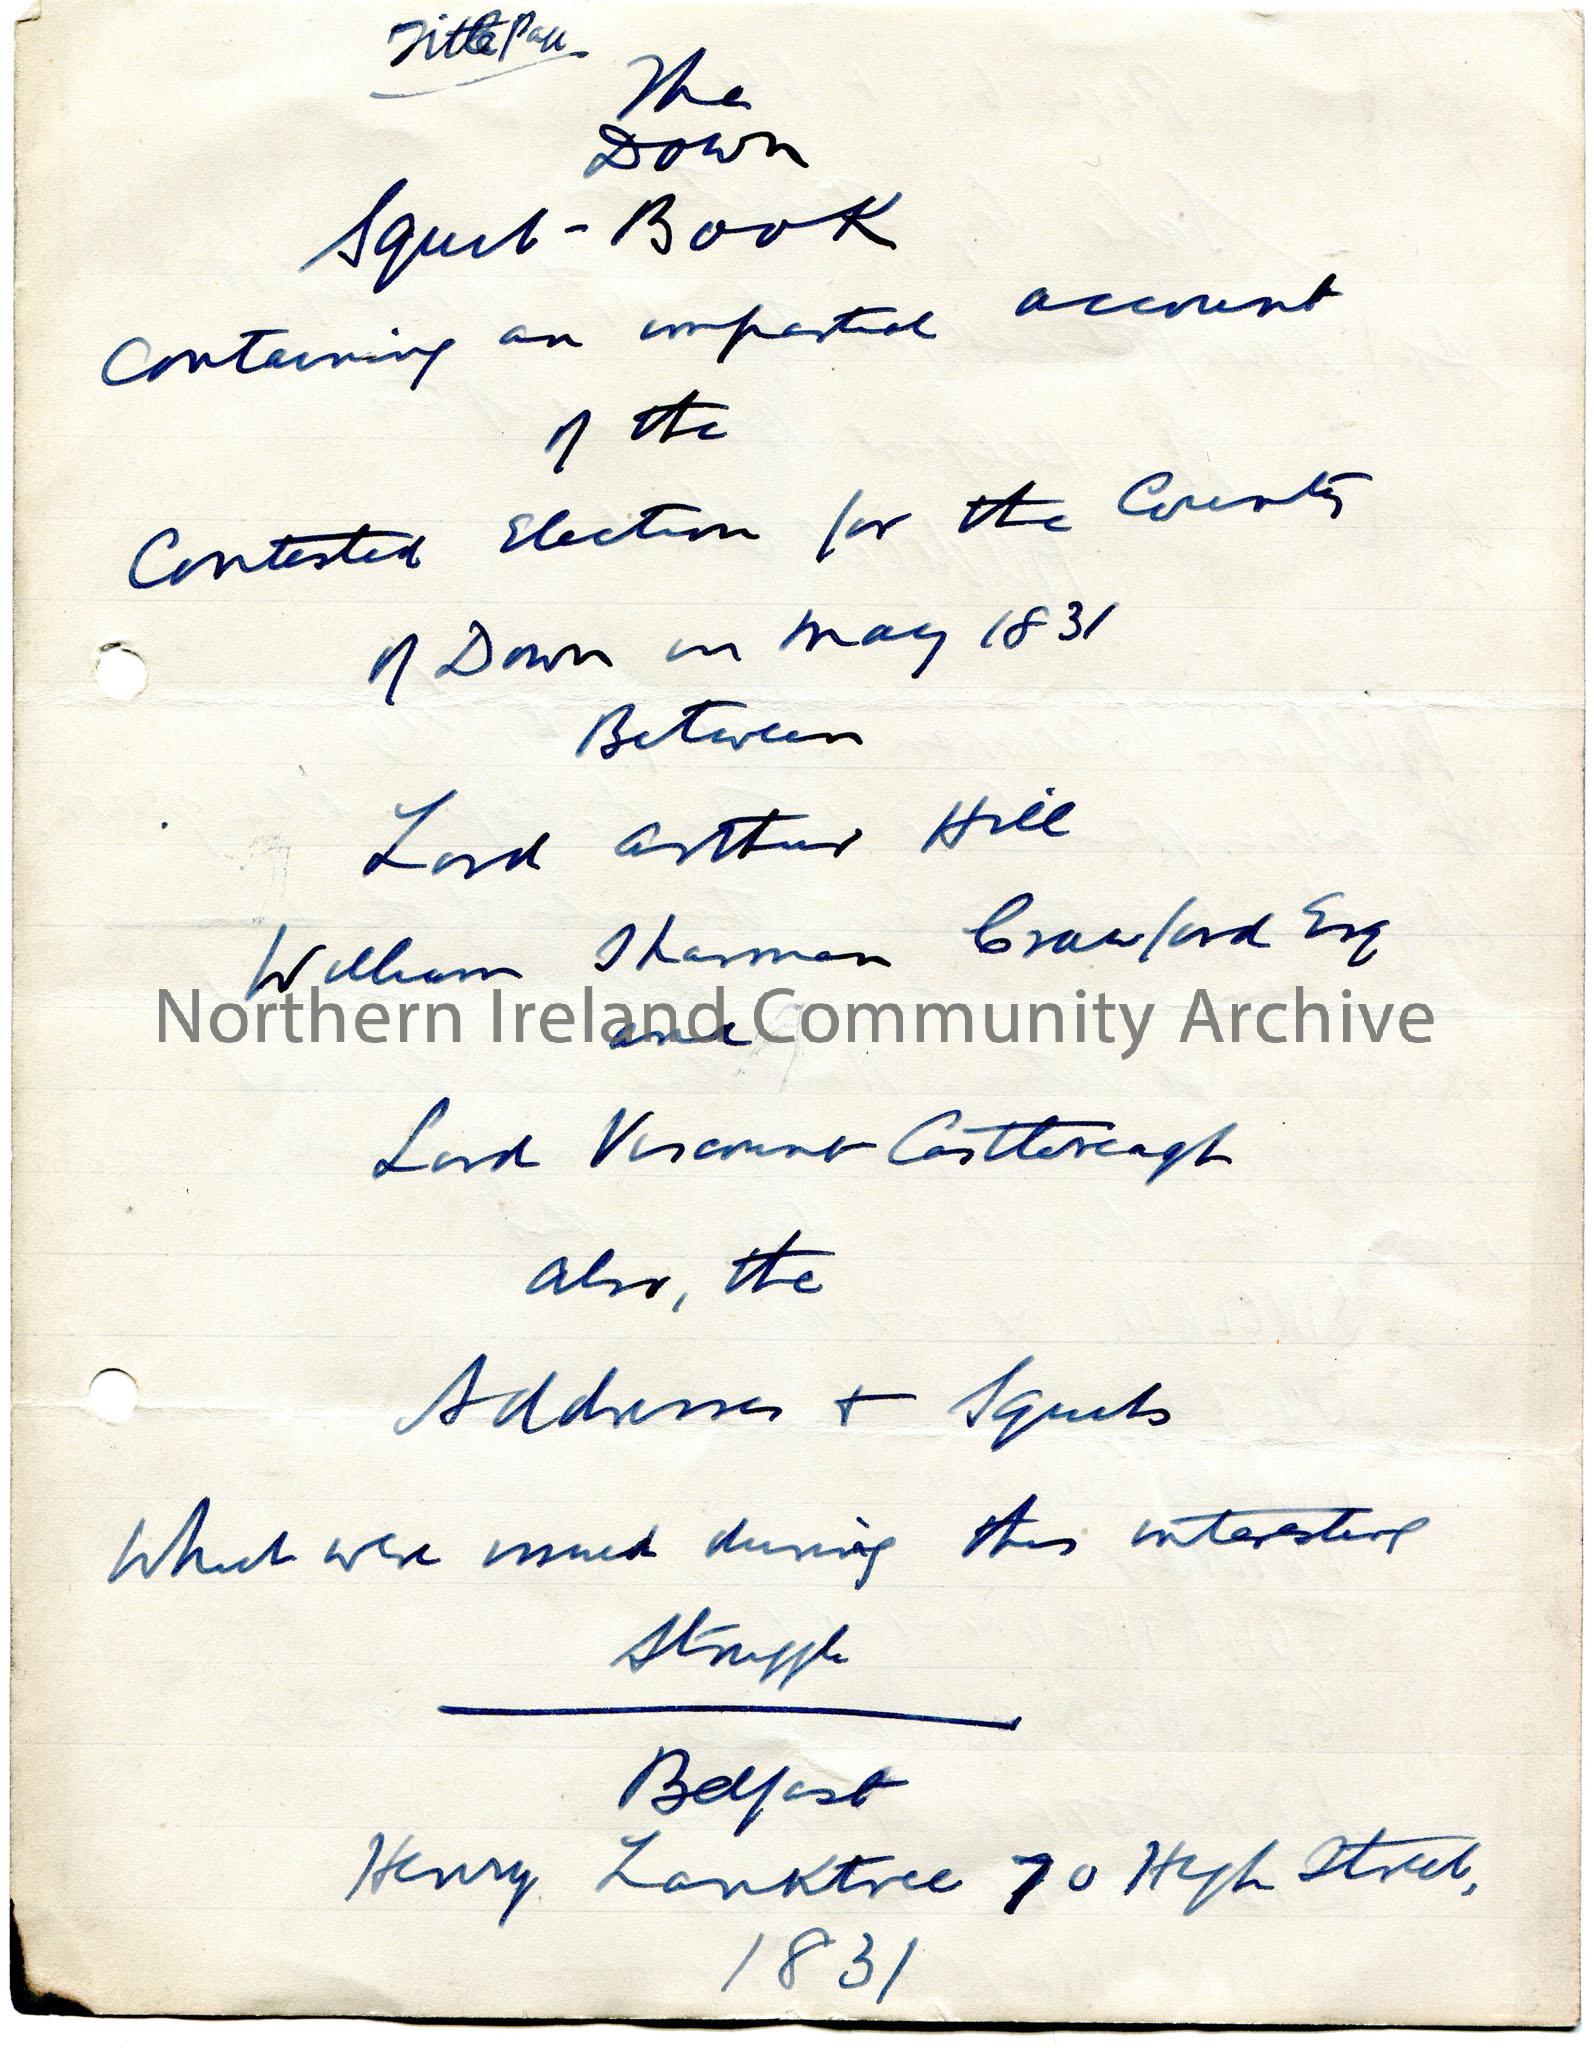 Title Page
The
Down
Squib-Book
Containing an impartial account
of the
Contested Election for the County
of Down in May 1831
Between
Lord Arthur Hill
William Sharman Crawford Esq
and
Northern Ireland Community Archive
Lord Viscount Castlereagh
also, the
Addresses + Squibs
Which were issued during this interesting
Struggle
Belfast
Henry Lanktree 70 High Street,
1831